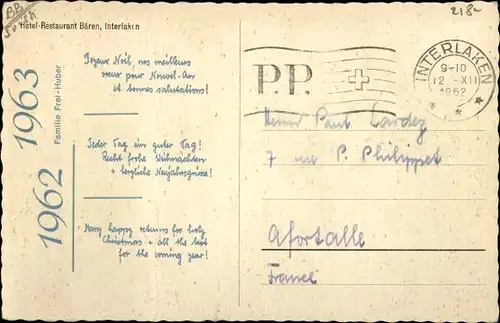 BB
2182
Hotel-Restaurant Bären, Interlaken
1962 1963
Familie Frei-Huber
Joyeux Noël, nos meilleurs
vœux pour Nouvel-An
et bonnes salutations!
Jeder Tag ein guter Tag!
Recht frohe Weihnachten
+ herzliche Neujahrsgrüsse!
Many happy returns for holy
Christmas + all the best
for the coming year!
P.P.
INTERLAKEN
9-10
12 -XII
1962
Paul
7 rue P. Philippet
Afortalle
France